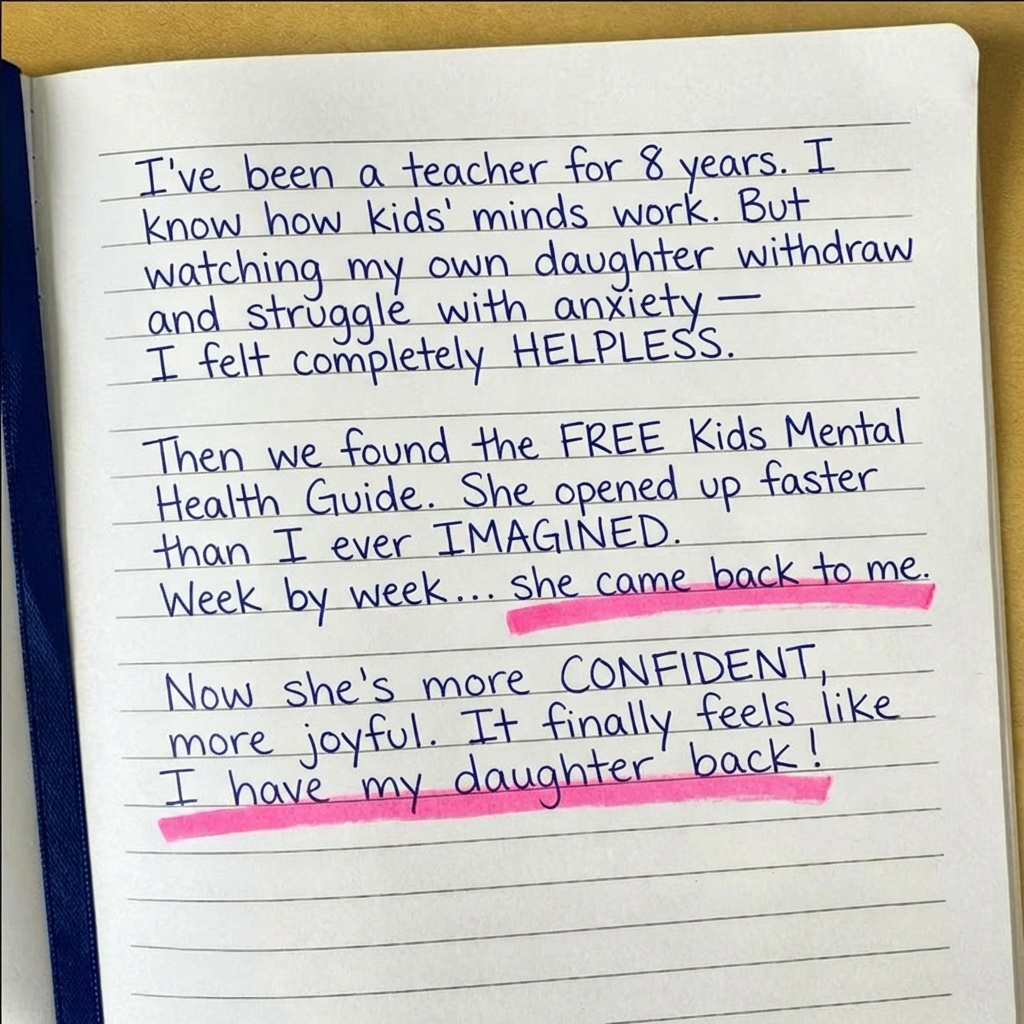 I've been a teacher for 8 years. I
know how kids' minds work. But
watching my own daughter withdraw
and struggle with anxiety —
I felt completely HELPLESS.
Then we found the FREE Kids Mental
Health Guide. She opened up faster
than I ever IMAGINED.
Week by week... she came back to me.
Now she's more CONFIDENT,
more joyful. It finally feels like
I have my daughter back!